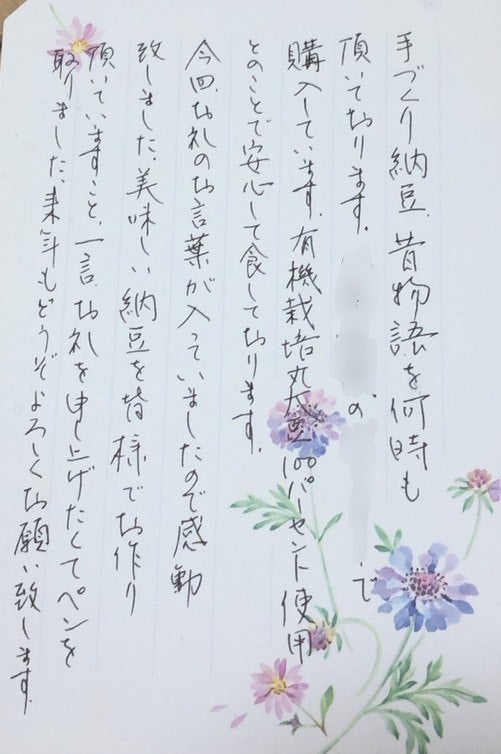 手づくり納豆、昔物語を何時も
頂いております。の、で
購入しています。有機栽培丸大豆100パーセント使用
とのことで安心して食しております。
今回、お礼のお言葉が入っていましたので感動
致しました。美味しい納豆を皆様でお作り
頂いていますこと、一言、お礼を申し上げたくてペンを
取りました。来年もどうぞよろしくお願い致します。